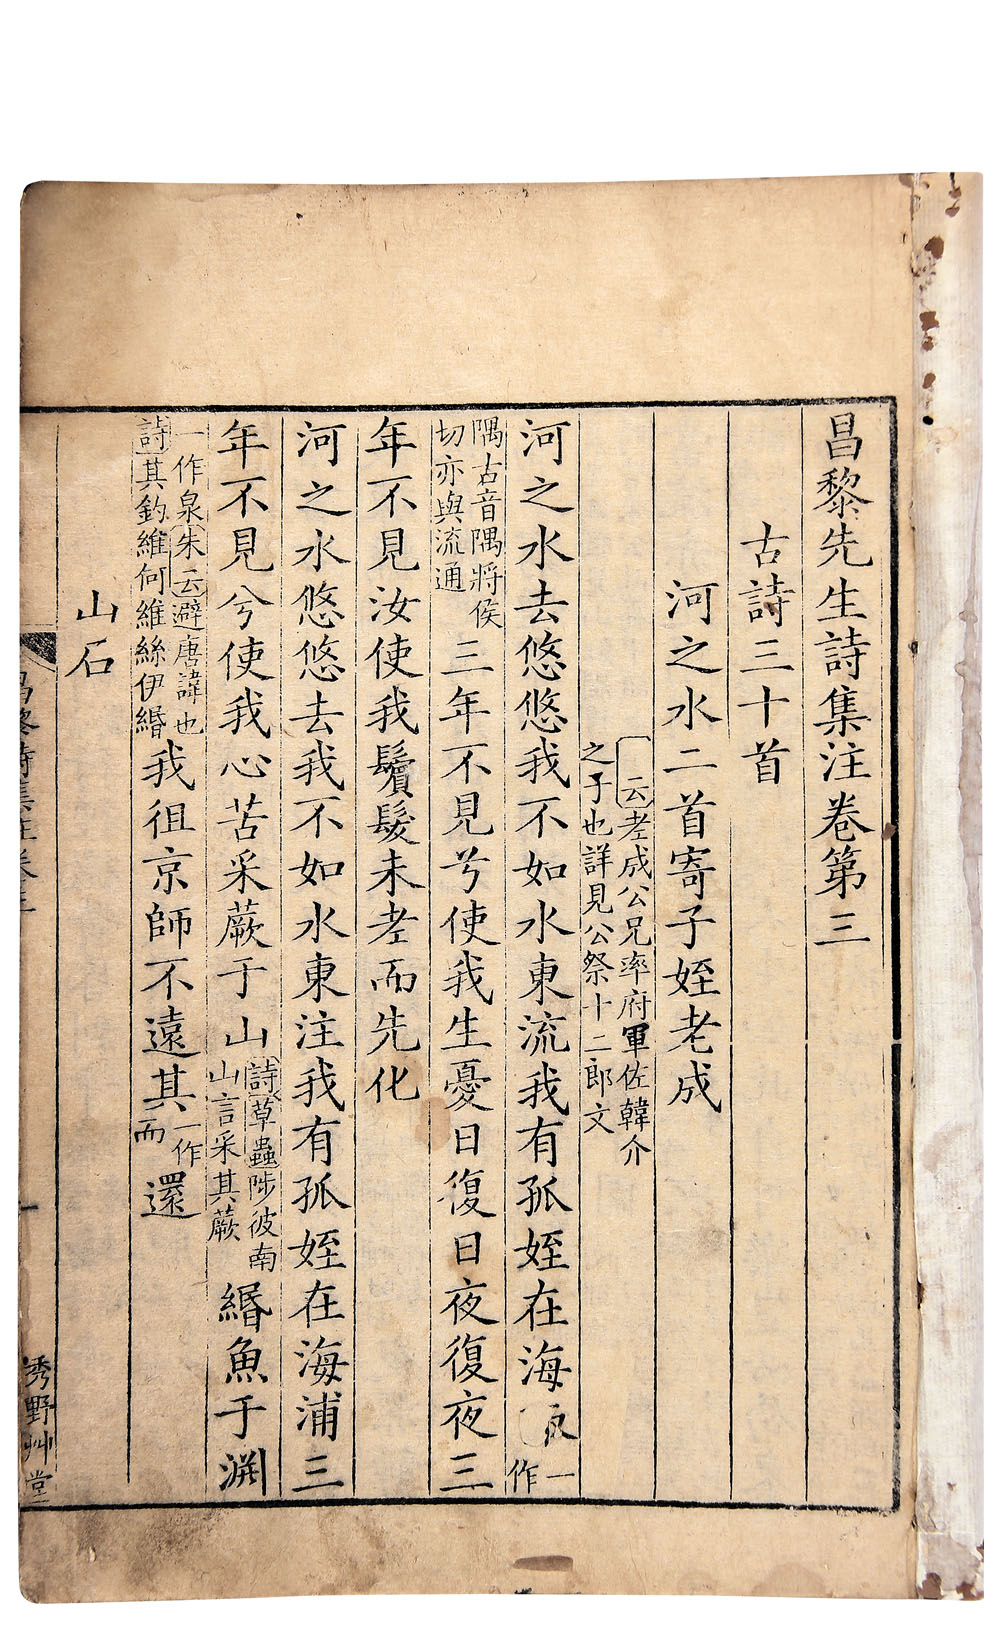 昌黎先生詩集注卷第三
古詩三十首
河之水二首寄子姪老成
云老成公兄率府軍佐韓介
之子也詳見公祭十二郎文
河之水去悠悠我不如水東流我有孤姪在海
一作
隅古音隅將侯
切亦與流通
三年不見兮使我生憂日復日夜復夜三
年不見汝使我鬢髮未老而先化
河之水悠悠去我不如水東注我有孤姪在海浦三
年不見兮使我心苦采蕨于山
詩草蟲陟彼南
山言采其蕨
緡魚于淵
一作泉朱云避唐諱也
詩其釣維何維絲伊緡
我徂京師不遠其
一作
而
還
山石
昌黎詩集注卷三
一
秀野艸堂